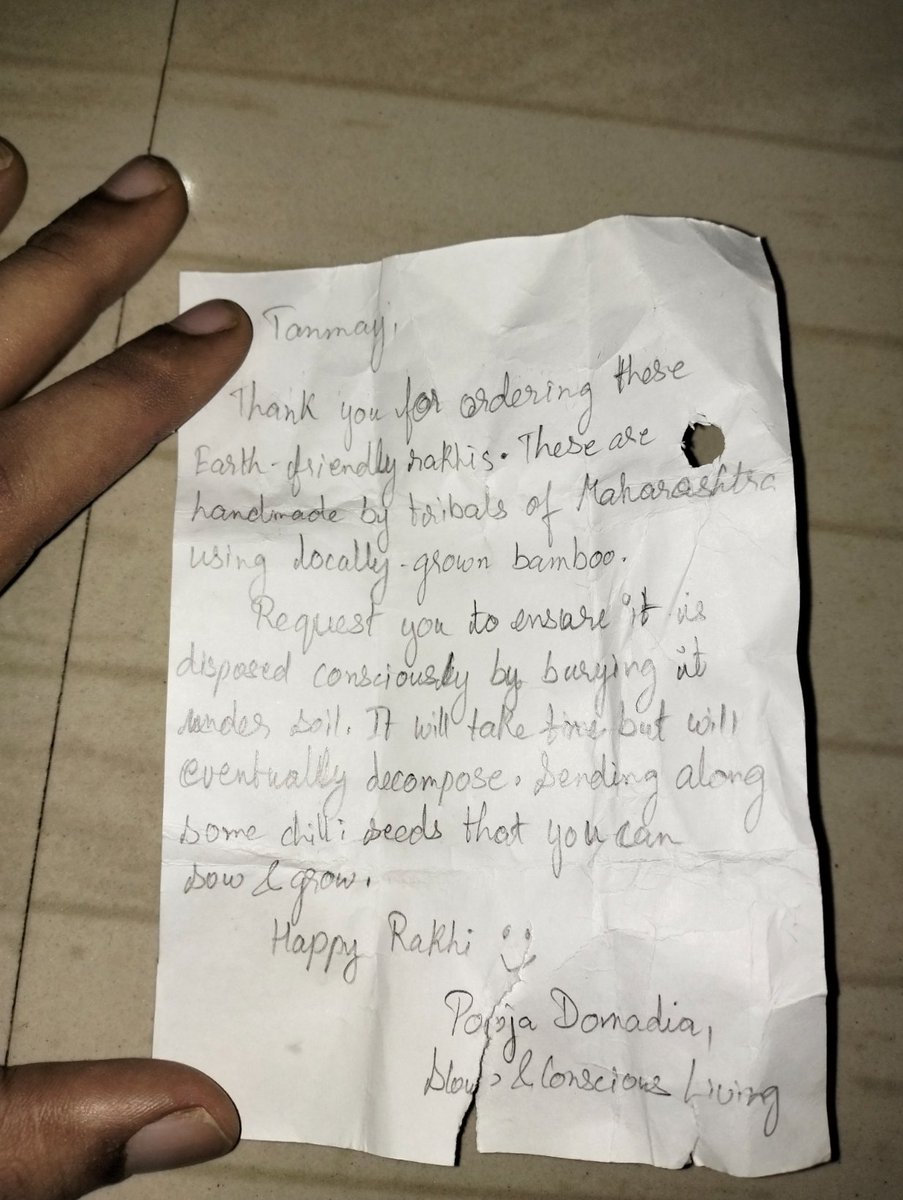 Tanmay,
Thank you for ordering these
Earth-friendly rakhis. These are
handmade by tribals of Maharashtra
using locally-grown bamboo.
Request you to ensure it is
disposed consciously by burying it
under soil. It will take time but will
eventually decompose. Sending along
some chilli seeds that you can
sow & grow.
Happy Rakhi
Pooja Domadia,
Slow & Conscious Living